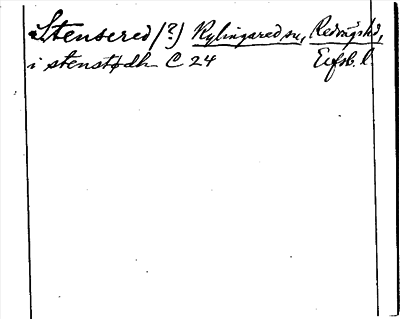 Stensered (?) Kylingared sn, Redvägs hd,
i stenstødh C 24 Elfsb. l.